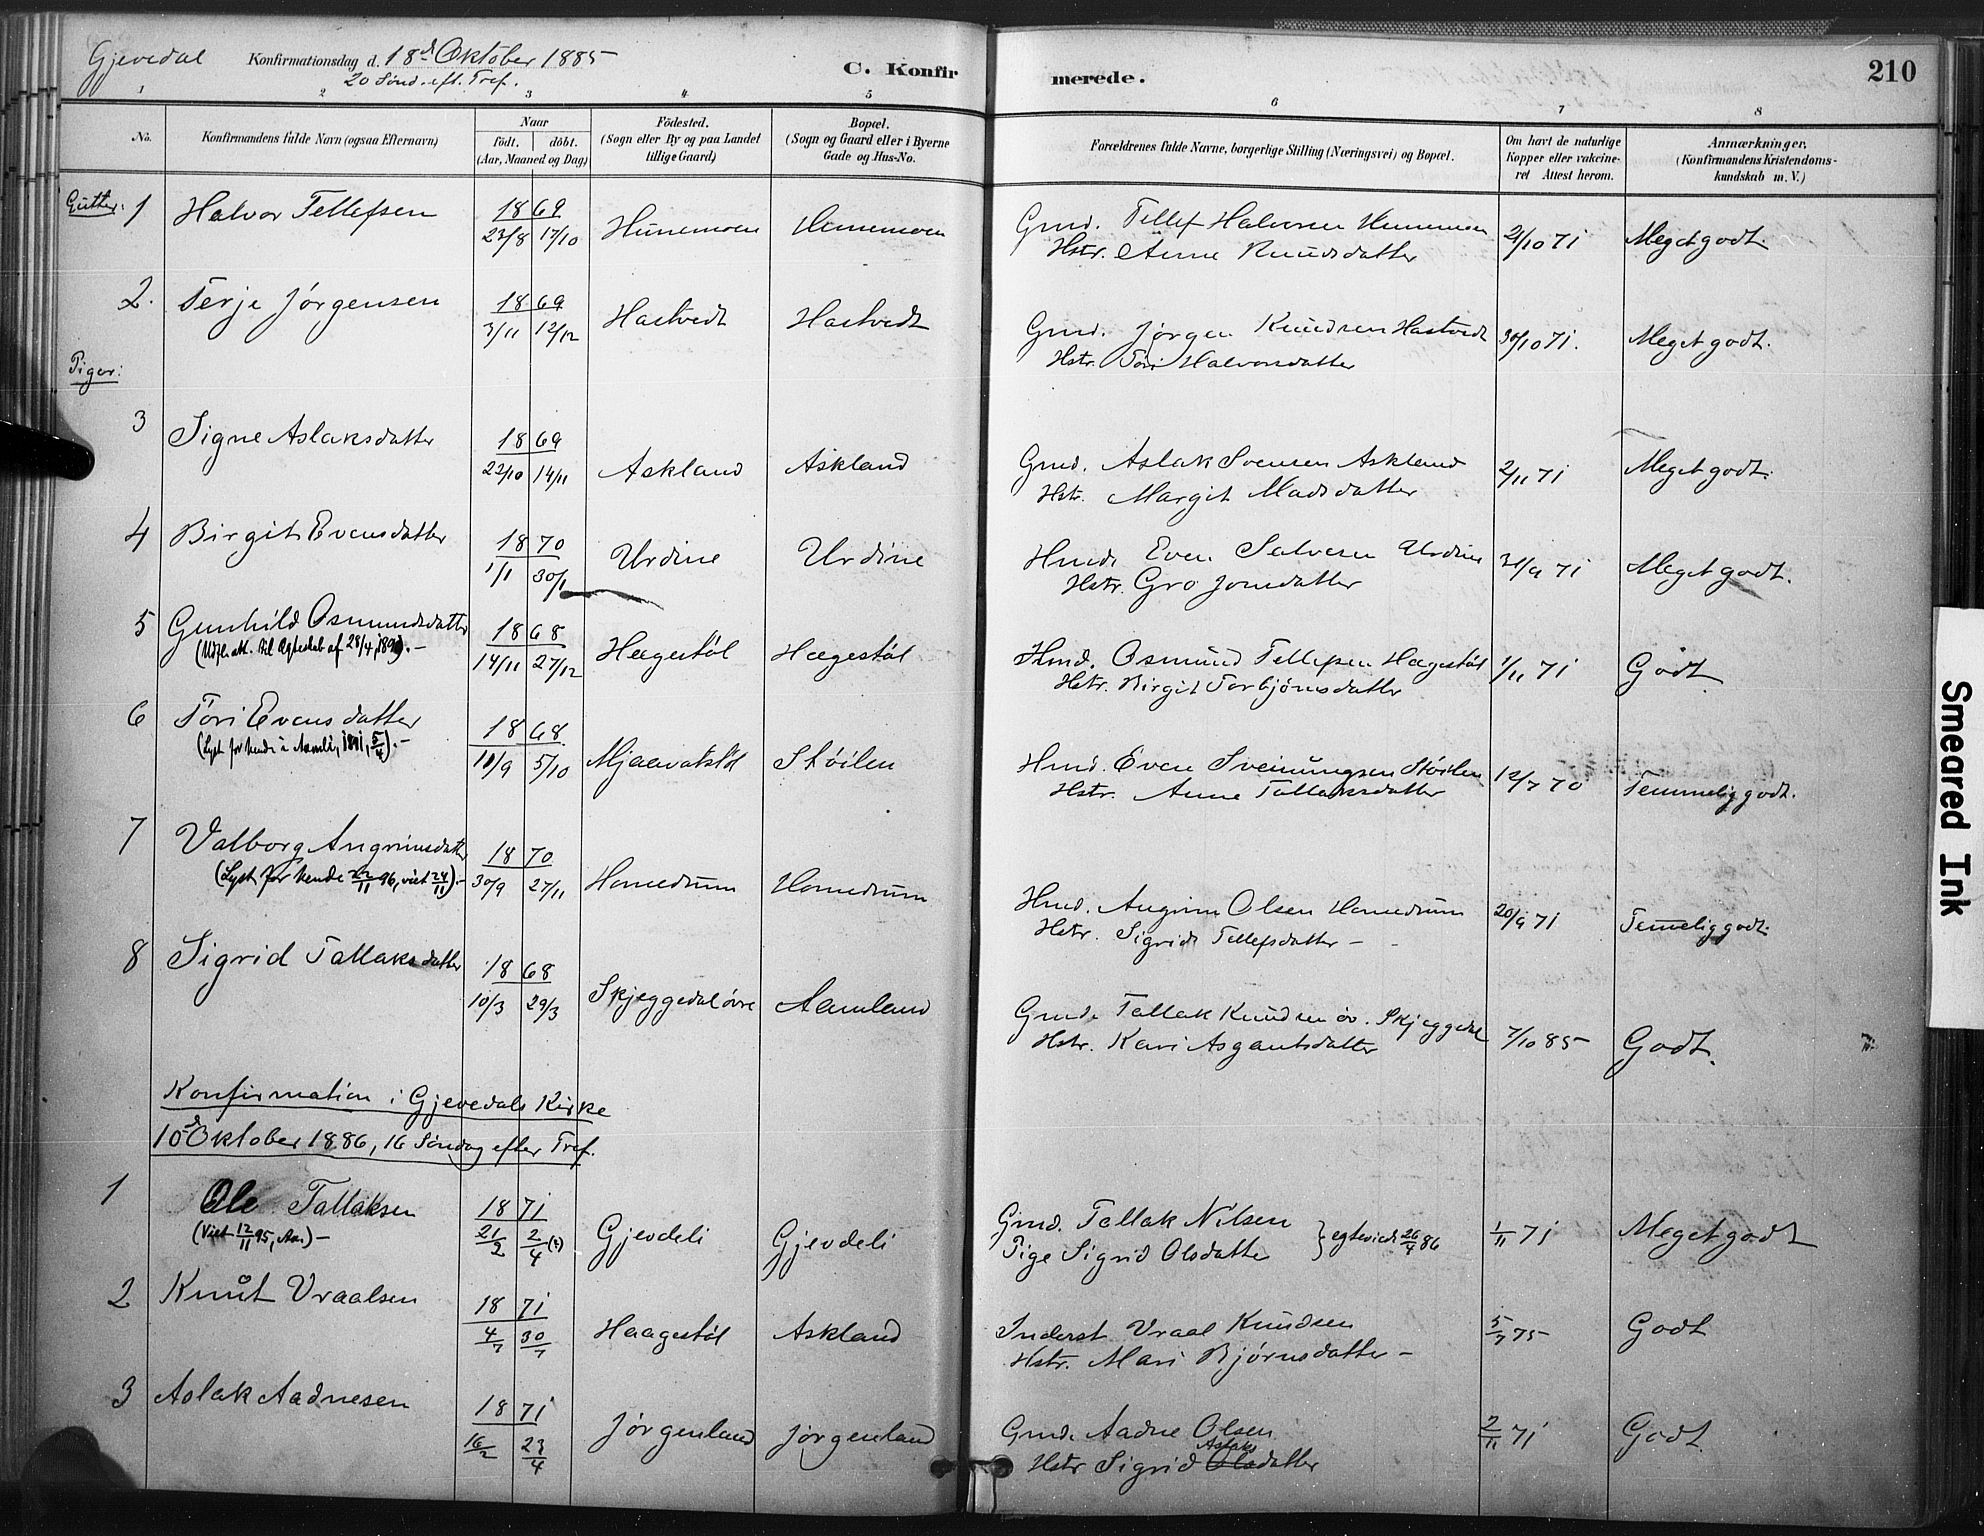 Gjevedal Konfirmationsdag d. 18d Oktober 1885
20 Sønd. eft. Tref.
C. Konfirmerede.
210
1 2 3 4 5 6 7 8
No. Konfirmandens fulde Navn (ogsaa Efternavn) Naar født. døbt. (Aar, Maaned og Dag) Fødested. (Sogn eller By og paa Landet tillige Gaard) Bopæl. (Sogn og Gaard eller i Byerne Gade og Hus-No. Forældrenes fulde Navne, borgerlige Stilling (Næringsvei) og Bopæl. Om havt de naturlige Kopper eller vaccineret Attest herom. Anmærkninger. (Konfirmandens Kristendomskundskab m. V.)
Gutter:
1 Halvor Tellefsen 1869 23/8 17/10 Hunemoen Hunemoen Gmd. Tellef Halvorsen Hunemoen 2/10 71 Meget godt.
Hstr. Anne Knudsdatter
2. Terje Jørgensen 1869 3/11 12/12 Hastvedt Hastvedt Gmd. Jørgen Knudsen Hastvedt 30/10 71. Meget godt.
Hstr. Tóri Halvorsdatter
Piger:
3 Signe Aslaksdatter 1869 22/10 14/11 Askland Askland Gmd. Aslak Svensen Askland 2/11 71 Meget godt.
Hstr. Margit Madsdatter
4 Birgit Evensdatter 1870 1/1 30/1 Urdine Urdine Hmd. Even Salvesen Urdine 31/9 71 Meget godt.
Hstr. Gro Jonsdatter
5 Gunhild Osmundsdatter 1868 14/11 27/12 Hægestøl Hægestøl Hmd. Osmund Tellefsen Hægestøl 1/11 71 Godt
(Udfl. att. til Ægteskab af 28/4, 1890). -
Hstr. Birgit Torbjørnsdatter
6 Tóri Evensdatter 1868 11/9 5/10 Mjaavatstøl Støilen Hmd. Even Sveinungsen Støilen 12/7 70 Temmelig godt.
(Lyst for hende i Aamli, 1891, 5/4). -
Hstr. Anne Tallaksdatter
7 Valborg Angrimsdatter 1870 30/9 27/11 Homdrum Homdrum Hmd. Angrim Olsen Homdrum 20/9 71 Temelig godt.
(Lyst for hende 22/11 96, viet 24/11). -
Hstr. Sigrid Tellefsdatter -
8 Sigrid Tallaksdatter 1868 10/3 29/3 Skjeggedal øvre Aamland Gmd. Tallak Knudsen øv. Skjeggedal 7/10 85 Godt.
Hstr. Kari Asgautsdatter
Konfirmation i Gjevedals Kirke
10d Oktober 1886, 16 Søndag efter Tref.
1 Ole Tallaksen 1871 21/2 2/4 (?) Gjevdeli Gjevdeli Gmd. Tallak Nilsen } egteviede 26/4 86 1/11 71 Meget godt
(Viet 12/11 95, Aa.) -
Pige Sigrid Olsdatter
2 Knut Vraalsen 1871 4/7 30/7 Haagestøl Askland Inderst Vraal Knudsen 5/7 75 Godt
Hstr. Mari Bjørnsdatter -
3 Aslak Aadnesen 1871 16/2 23/4 Jørgenland Jørgenland Gmd. Aadne Olsen 2/11 71 Godt
Hstr Sigrid Aslaks Olsdatter
Smeared Ink